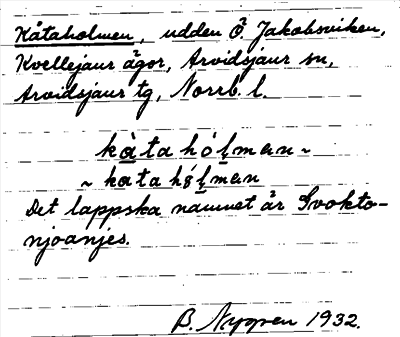 Kåtaholmen, udden Ö. Jakobsviken,
Kvellejaur ägor, Arvidsjaur sn,
Arvidsjaur tg, Norrb. l.
kàtahólmen ~
~ katahólmen
Det lappska namnet är Svokto-
njoanjes.
B. Nyppen 1932.